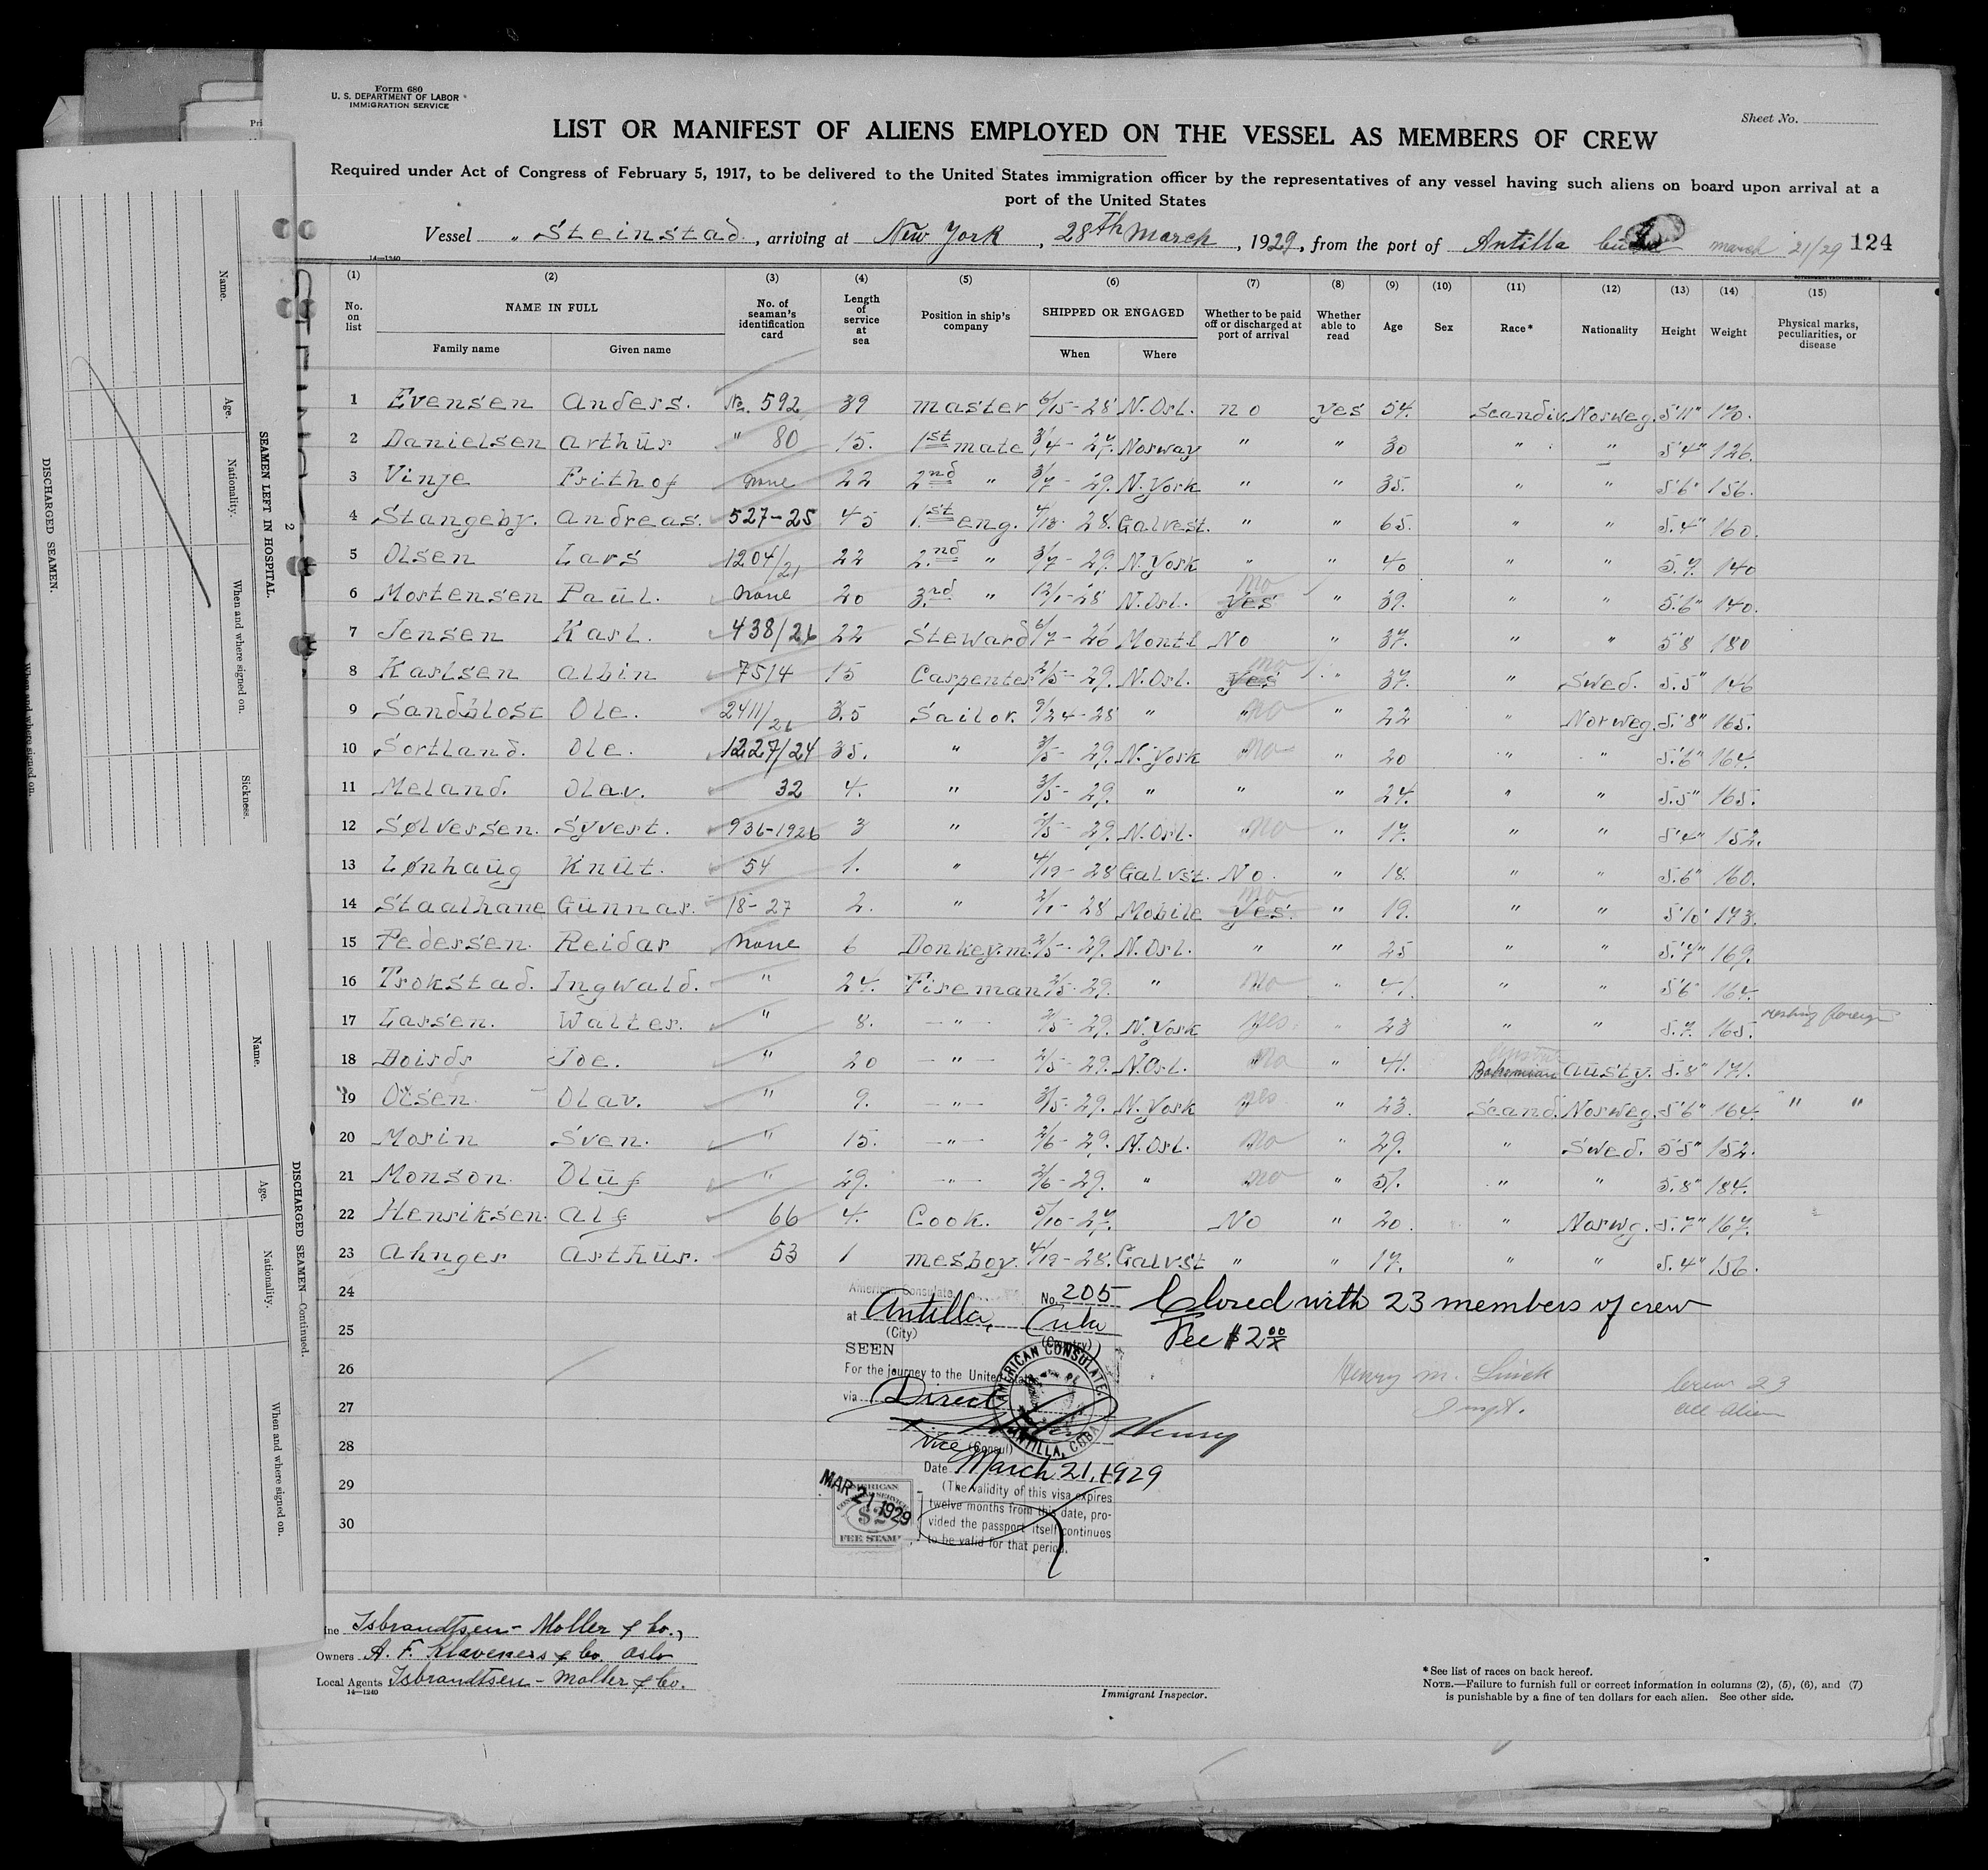 Form 680
U. S. DEPARTMENT OF LABOR
IMMIGRATION SERVICE
Sheet No.
LIST OR MANIFEST OF ALIENS EMPLOYED ON THE VESSEL AS MEMBERS OF CREW
Required under Act of Congress of February 5, 1917, to be delivered to the United States immigration officer by the representatives of any vessel having such aliens on board upon arrival at a
port of the United States
Vessel „ Steinstad, arriving at New York, 28th March, 1929, from the port of Antilla march 21/29 124
14—1240
(1) (2) (3) (4) (5) (6) (7) (8) (9) (10) (11) (12) (13) (14) (15)
No. on list NAME IN FULL No. of seaman's identification card Length of service at sea Position in ship's company SHIPPED OR ENGAGED Whether to be paid off or discharged at port of arrival Whether able to read Age Sex Race* Nationality Height Weight Physical marks, peculiarities, or disease
Family name Given name When Where
1 Evensen Anders. No. 592 39 master 6/15-28 N.Orl. no yes 54. Scandiv. Norweg. 5'11" 170.
2 Danielsen Arthür " 80 15. 1st mate 3/4-27. Norway " " 30 " " 5'4" 126.
3 Vinje Frithof none 22 2nd " 3/7-29. N.York " " 35. " " 5'6" 156.
4 Stangeby. Andreas. 527-25 45 1.st eng. 4/18-28. Galvest. " " 65. " " 5.4" 160.
5 Olsen Lars 1204/21 22 2.nd " 3/7-29. N.York " " 40 " " 5.9. 140
6 Mortensen Paül. none 20 3.nd " 12/1-28 N.Orl. yes no " 39. " " 5'6" 140.
7 Jensen Karl. 438/26 22 Steward 6/7-26 Montl No " 37. " " 5'8 180
8 Karlsen Albin 7514 15 Carpenter 2/5-29. N.Orl. yes no " 37. " Swed. 5.5" 146
9 Ole. 2411/26 3.5 Sailor. 9/24-28 " " no " 22 " Norweg. 5.'8" 165.
10 Sortland. Ole. 1227/24 35. " 3/5-29. N.York " no " 20 " " 5.'6" 164.
11 Meland. Olav. 32 4. " 3/5-29. " " " 24. " " 5.5" 165.
12 Sølversen. Syvert. 936-1926 3 " 2/5-29. N.Orl. " no " 17. " " 5'4" 152.
13 Lønhaüg Knüt. 54 1. " 4/19-28 Galvst. No. " 18. " " 5.'6" 160.
14 Staalhane Günnar. 18-27 2. " 2/1-28 Mobile yes. no " 19. " " 5'10' 173.
15 Pedersen. Reidar none 6 Donkey.m. 2/5-29. N.Orl. " " 25 " " 5.'7" 169.
16 Trokstad. Ingwald. " 24. Fireman 2/5-29. " no " 41. " " 5'6" 164.
17 Larsen. Walter. " 8. — " — 3/5-29. N.York yes. " 23 " " 5.7. 165. foreign
18 Joe. " 20 — " — 2/5-29. N.Orl. " no " 41. Bohemian Aüsty. 5.8" 171.
19 Olsen. Olav. " 9. — " — 3/5-29. N.York yes " 23. Scand. Norweg. 5'6" 164. " "
20 Morin Sven. " 15. — " — 2/6-29. N.Orl. no " 29. " Swed. 5'5" 152.
21 Monson. Olüf " 29. — " — 2/6-29. " no " 51. " " 5.8" 184.
22 Henriksen. Alf 66 4. Cook. 5/10-27. No " 20. " Norwg. 5.'7" 167.
23 Ahnger Arthür. 53 1 mesboy. 4/19-28. Galvst " " 17. " " 5.4" 156.
24 American Consulate No. 205 Closed with 23 members of crew
at Antilla, Cuba
(City) (Country)
25 Fee $2 00/x
SEEN
26 For the journey to the United States
Henry M. Crew 23
27 via Direct all alien
AMERICAN CONSULATE. ANTILLA, CUBA
Henry
28 Vice (Consul)
Date March 21, 1929
29 (The validity of this visa expires
twelve months from this date, pro-
30 vided the passport itself continues
to be valid for that period.
MAR 21 1929
AMERICAN
$2
FEE STAMP
Line Isbrandtsen - Moller & Co.,
Owners A. F. Klaveness & Co. Oslo
Local Agents Isbrandtsen - Moller & Co.
14—1240
Immigrant Inspector.
*See list of races on back hereof.
NOTE.—Failure to furnish full or correct information in columns (2), (5), (6), and (7)
is punishable by a fine of ten dollars for each alien. See other side.
2
SEAMEN LEFT IN HOSPITAL.
Name. Age. Nationality. When and where signed on. Sickness.
DISCHARGED SEAMEN.
When and where signed on.
DISCHARGED SEAMEN—Continued.
Name. Age. Nationality. When and where signed on.